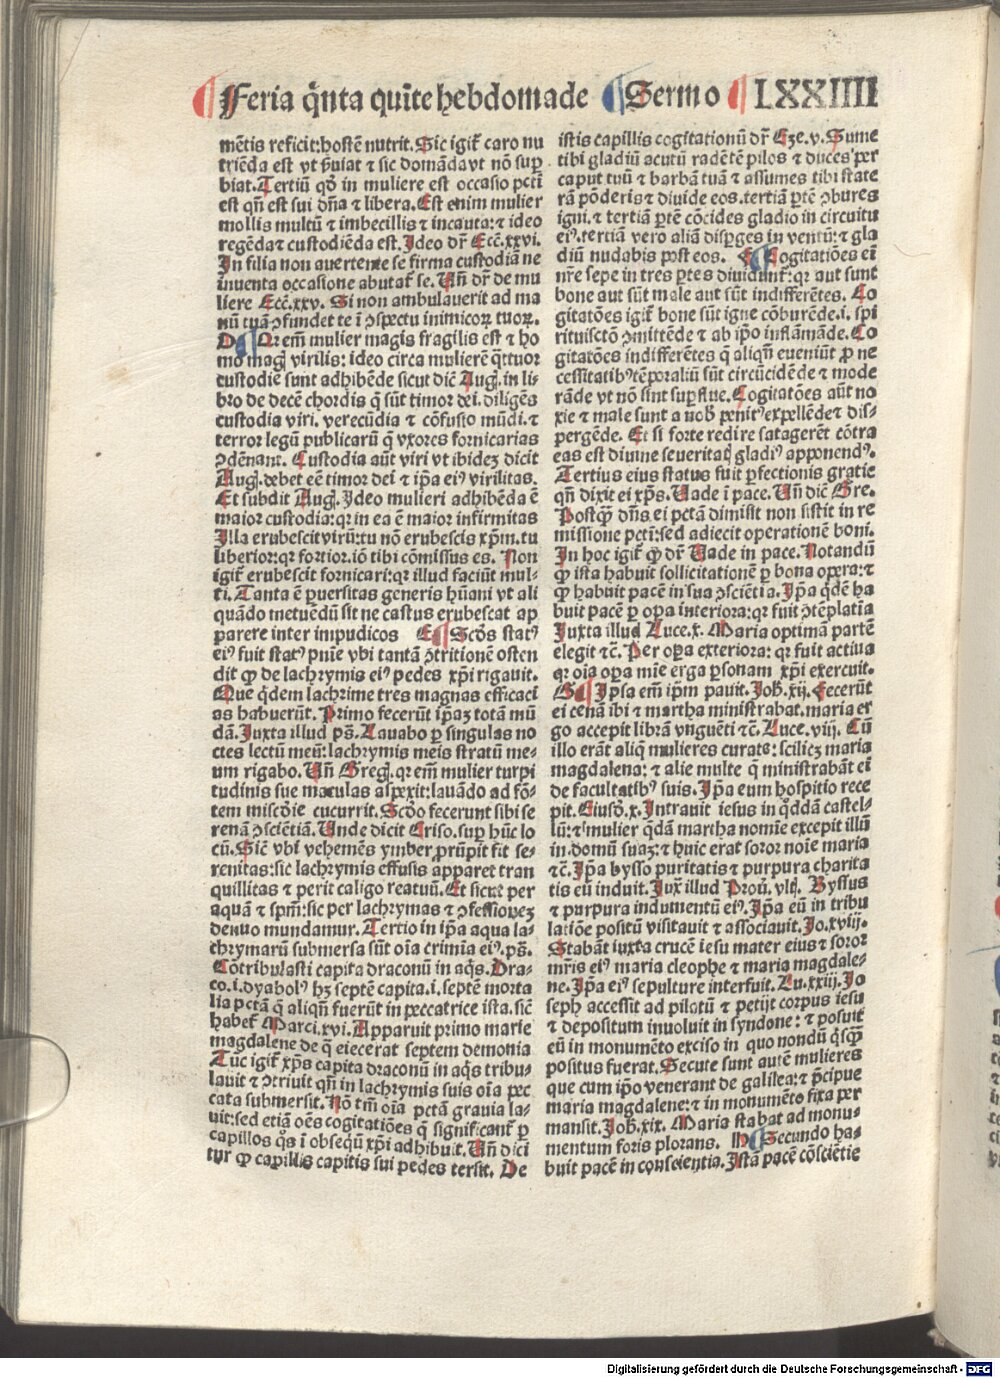 Feria q̈nta quīte hebdomade Sermo LXXIIII
mētis reficit: hostē nutrit. Sic igit̄ caro nu
triēda est vt ẜuiat ⁊ sic domāda vt nō suꝑ
biat. Tertiū qḋ in muliere est occasio pctī
est qn̄ est sui dn̄a ⁊ libera. Est enim mulier
mollis multū ⁊ imbecillis ⁊ incauta: ⁊ ideo
regēda ⁊ custodiēda est. Ideo dr̄ Eccī. xxvi.
In filia non auertente se firma custodiā ne
inuenta occasione abutat̄ se. Vn̄ dr̄ de mu
liere Eccī. xxv. Si non ambulauerit ad ma
nū tuā ꝯfundet te ī ꝯspectu inimicoꝝ tuoꝝ.
D Qr em̄ mulier magis fragilis est ⁊ ho
mo magꝭ virilis: ideo circa mulierē q̈ttuor
custodie sunt adhibēde sicut dic̄ Augꝭ. in li-
bro de decē chordis q̄ sūt timor dei. diligēs
custodia viri. verecūdia ⁊ cōfusio mūdi. ⁊
terror legū publicarū q̄ vxores fornicarias
ꝯdēnant. Custodia aūt viri vt ibidez dicit
Augꝭ. debet eē timor dei ⁊ ip̄a eiꝰ virilitas.
Et subdit Augꝭ. Ideo mulieri adhibēda ē
maior custodia: qr in ea ē maior infirmitas
Illa erubescit virū: tu nō erubescis xp̄m. tu
liberior: qr fortior. iō tibi cōmissus es. Non
igit̄ erubescit fornicari: qr illud faciūt mul-
ti. Tanta ē ꝑuersitas generis hūani vt ali
quādo metuēdū sit ne castus erubescat ap
parere inter impudicos E Scḋs statꝰ
eiꝰ fuit statꝰ pnīe vbi tantā ꝯtritionē osten
dit ꝙ de lachrymis eiꝰ pedes xp̄i rigauit.
Que q̈dem lachrime tres magnas efficaci
as habuerūt. Primo fecerūt ip̄az totā mū
dā. Iuxta illud ps̄. Lauabo ꝑ singulas no
ctes lectū meū: lachrymis meis stratū me-
um rigabo. Vn̄ Gregꝭ. qr em̄ mulier turpi
tudinis sue maculas aspexit: lauādo ad fō-
tem miscḋie cucurrit. Scḋo fecerunt sibi se
renā ꝯsciētiā. Unde dicit Criso. suꝑ hūc lo
cū. Sic̄ vbi vehemēs ymber prūpit fit se-
renitas: sic lachrymis effusis apparet tran
quillitas ⁊ perit caligo reatuū. Et sicut per
aquā ⁊ spm̄: sic per lachrymas ⁊ ꝯfessionez
denuo mundamur. Tertio in ip̄a aqua la-
chrymarū submersa sūt oīa crimīa eiꝰ. ps̄.
Cōtribulasti capita draconū in aq̄s. Dra-
co. i. dyabolꝰ hꝫ septē capita. i. septē morta
lia pctā q̄ aliqn̄ fuerūt in peccatrice ista. sic̄
habet̄ Marci. xvi. Apparuit primo marie
magdalene de q̄ eiecerat septem demonia
Tūc igit̄ xp̄s capita draconū in aq̄s tribu-
lauit ⁊ ꝯtriuit qn̄ in lachrymis suis oīa pec
cata submersit. Nō tm̄ oīa pctā grauia la-
uit: sed etiā oēs cogitatiōes q̄ significant̄ ꝑ
capillos q̄s ī obsequ xp̄i adhibuit. Vn̄ dici
tur ꝙ capillis capitis sui pedes tersit. De
istis capillis cogitationū dr̄ Eze. v. Sume
tibi gladiū acutū radētē pilos ⁊ duces per
caput tuū ⁊ barbā tuā ⁊ assumes tibi state
rā pōderis ⁊ diuide eos. tertiā ꝑtē ꝯbures
igni. ⁊ tertiā ꝑtē cōcides gladio in circuitu
eiꝰ. tertiā vero aliā disꝑges in ventū: ⁊ gla
diū nudabis post eos. F Cogitatiōes ei
nr̄e sepe in tres ꝑtes diuidunt̄: qr aut sunt
bone aut sūt male aut sūt indifferētes. Co
gitatōes igit̄ bone sūt igne cōburēde. i. spi
rituiscto ꝯmittēde ⁊ ab ip̄o inflamāde. Co
gitatōes indifferētes q̄ aliqn̄ eueniūt ꝓ ne
cessitatibꝰ tēporaliū sūt circūcidēde ⁊ mode
rāde vt nō sint suꝑflue. Cogitatōes aūt no
xie ⁊ male sunt a nob̄ penitꝰ expellēde ⁊ dis-
pergēde. Et si forte redire satagerēt cōtra
eas est diuine seueritatꝭ gladiꝰ apponendꝰ.
Tertius eius status fuit ꝑfectionis gratie
qn̄ dixit ei xp̄s. Vade ī pace. Vn̄ dic̄ Gre.
Postꝙ̄ dn̄s ei pctā dimisit non sistit in re
missione pcti: sed adiecit operationē boni.
In hoc igit̄ ꝙ dr̄ Vade in pace. Notandū
ꝙ ista habuit sollicitationē ꝑ bona opera: ⁊
ꝙ habuit pacē in sua ꝯsciētia. Ip̄a q̈dē ha
buit pacē ꝑ oꝑa interiora: qr fuit ꝯtēplatia
Iuxta illud Luce. x. Maria optimā partē
elegit ⁊c̄. Per oꝑa exteriora: qr fuit actiua
qr oīa oꝑa mīe erga ꝑsonam xp̄i exercuit.
G Ipsa em̄ ip̄m pauit. Joh̄. xij. Fecerūt
ei cenā ibi ⁊ martha ministrabat. maria er
go accepit librā vnguēti ⁊c̄. Luce. viij. Cū
illo erāt aliq̄ mulieres curate: scilicz maria
magdalena: ⁊ alie multe q̄ ministrabāt ei
de facultatibꝰ suis. Ip̄a eum hospitio rece
pit. Eiusḋ. x. Intrauit iesus in q̈ddā castel-
lū: ⁊ mulier q̈dā martha nomīe excepit illū
in domū suaz: ⁊ huic erat soror noīe maria
⁊c̄. Ip̄a bysso puritatis ⁊ purpura charita
tis eū induit. Jux̄ illud Prou̇. vltꝭ. Byssus
⁊ purpura indumentū eiꝰ. Ip̄a eū in tribu
latiōe positū visitauit ⁊ associauit. Jo. xviij.
Stabāt iuxta crucē iesu mater eius ⁊ soror
mr̄is eiꝰ maria cleophe ⁊ maria magdale-
ne. Ip̄a eiꝰ sepulture interfuit. Lu. xxiij. Jo
seph accessit ad pilatū ⁊ petijt corpus iesu
⁊ depositum inuoluit in syndone: ⁊ posuit
eū in monumēto exciso in quo nondū q̈sꝙ̄
positus fuerat. Secute sunt autē mulieres
que cum ip̄o venerant de galilea: ⁊ p̄cipue
maria magdalene: ⁊ in monumēto fixa per
mansit. Joh̄. xix. Maria stabat ad monu-
mentum foris plorans. H Secundo ha-
buit pacē in conscientia. Istā pacē cōsciētie
Digitalisierung gefördert durch die Deutsche Forschungsgemeinschaft - DFG